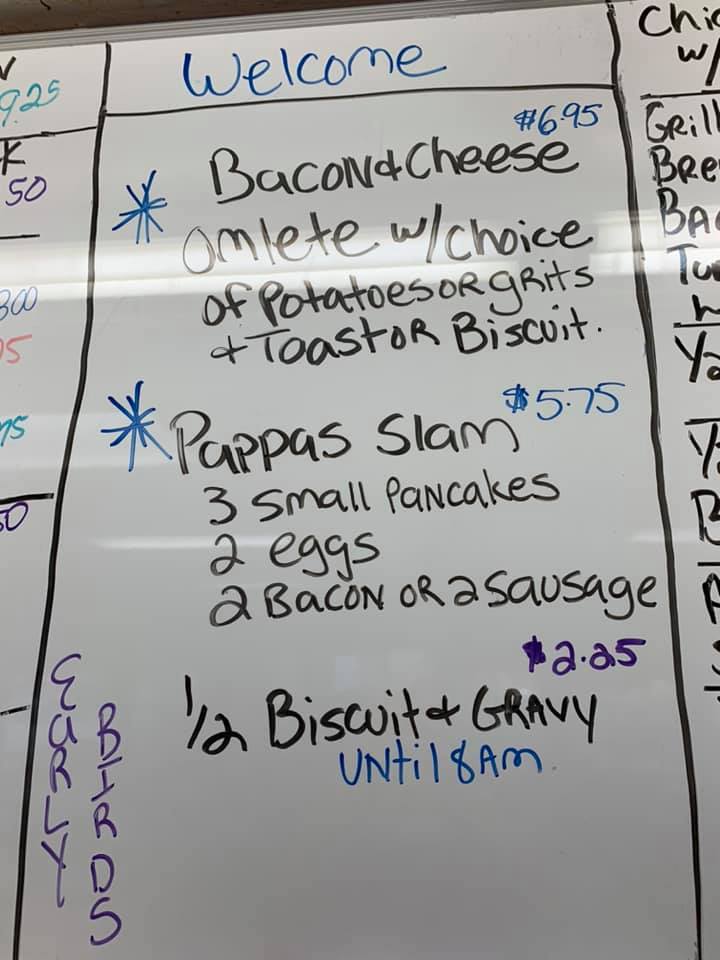 Welcome
$6.95
* Bacon & Cheese
Omlete w/choice
of Potatoes or grits
& Toast or Biscuit.
$5.75
* Pappas Slam
3 Small Pancakes
2 eggs
2 Bacon or 2 Sausage
$2.25
1/2 Biscuit & Gravy
Until 8 Am
EARLY
BIRDS
9.25
50
300
5
75
50
w/
Grill
Bre
Ba
1/2